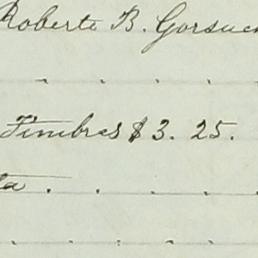 Roberto B. Gorsuch
Timbres $3. 25.
ta